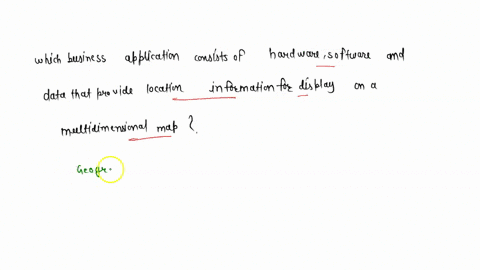 which business application consists of hardware, software and
data that provide location information for display on a
multidimensional map?
Geogr.